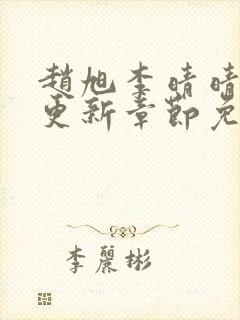 趙旭李晴晴
更新章節免
李麗彬